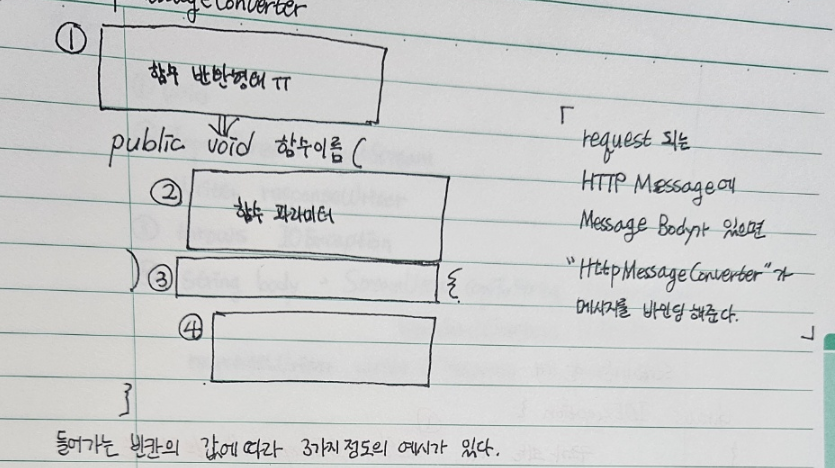 ageConverter
①
함수 반환형태 π
public void 함수이름 (
②
함수 파라미터
) ③ {
④
}
「
request 되는
HTTP Message에
Message Body가 있으면
"HttpMessageConverter"가
메시지를 바인딩 해준다.
」
들어가는 빈칸의 값에 따라 3가지정도의 예시가 있다.